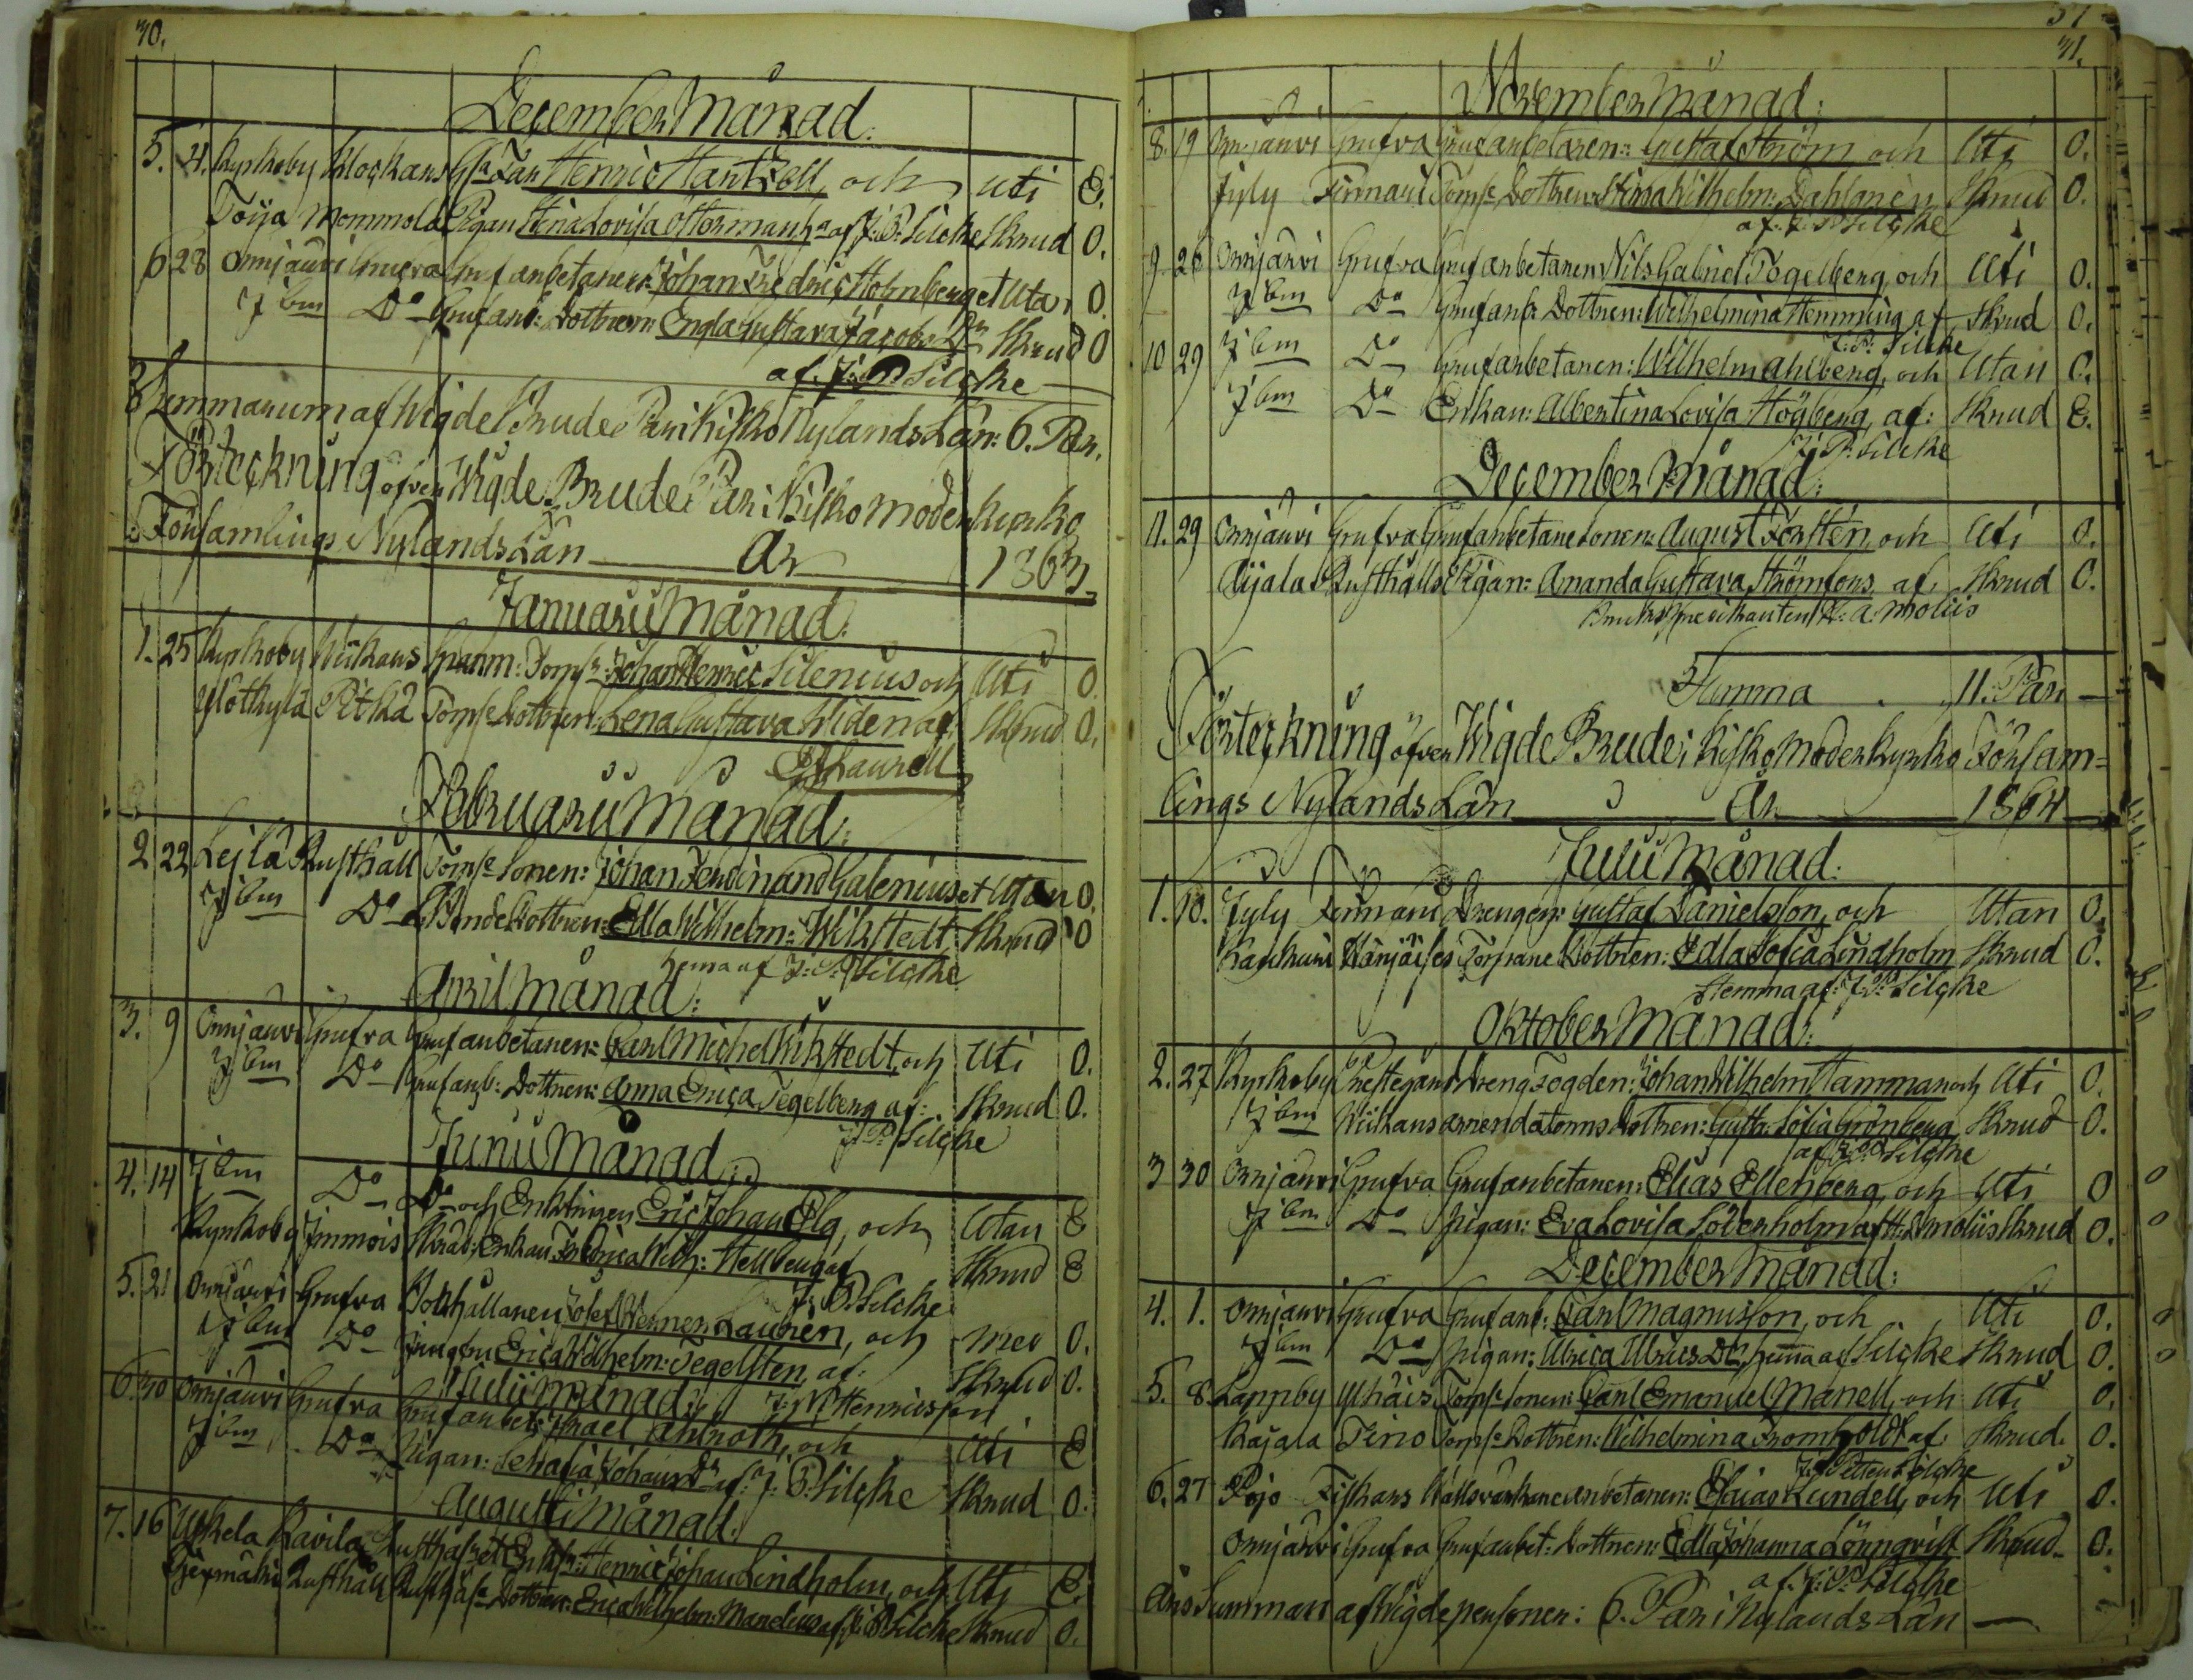 30.
December Månad.
5. 4. Kyrkoby Klockars Henric Hantsell, och uti E.
Toija Mommola Pigan Stina Lovisa Ottermans af J. P. Silcke Skrud O.
6 28 Orrijärvi Grufva Grufarbetaren: Johan Fredric Holmberg et Utan O.
Jbm Do Grufarb: Dottren: Engla Gustava Jacobs Dr Skrud O
af. J. P. Silcke
Summarum af Wigde Brude Par i Kisko Nylands Län: 6. Par.
Förteckning öfver Wigde Brude Par i Kisko moder kyrko
Församlings Nylands Län År 1863.
Januarii Månad.
1. 25 Kyrkoby Wiikars Spanm: Torpr: Johan Henric Silenius och Uti O.
Ylötkylä Pitkä Torpe Dottren: Lena Gustava Widen af. Skrud O.
Laurell
Februarii Månad:
2 22 Lejlä Rusthåll Torpe Sonen: Johan Ferdinand Galenius et Utan O.
Jbm Do Bonde Dottren: Edla Wilhelm: Wikstedt, Skrud O
hema af J. P. Silcke
April Månad:
3. 9 Orrijärvi Grufva Grufarbetaren: Carl Michel Wikstedt, och Uti O.
Jbm Do Grufarb: Dottren: Anna Erica Tegelberg af: Skrud O.
J. P. Silcke
Junii Månad:
4. 14 Jbm Do Do och Enklingen Eric Johan Elg, och Utan E
Kyrkoby Jmmois Skräd: Enkan Fredrica Wilh: Hellberg af Skrud E
J. P. Silcke
5. 21 Orrijärvi Grufva Bokhållaren Josef Werner Lauren, och med O.
Jbm Do Jungfru Erica Wilhelm: Tegelsten, af: Skrud O.
Julii månad: J. W. Henricsson
6. 30 Orrijärvi Grufva Grufarbet: Israel Ahlroth, och Uti E
Jbm Do Pigan: Serafia Johans Dr af: J. P. Silcke Skrud O.
Augusti Månad.
7. 16 Uskela Kavila Rusthåll et Enkl: Henric Johan Lindholm, och Uti E.
Rusthåll Dottren: Erica Wilhelm: Mandelius af J. P. Silcke Skrud O.
31
31.
November Månad:
8. 19 Orrijärvi Grufva Grufarbetaren: Gustaf Ström och Uti O.
Jyly Finnari Torpe Dottren: Stina Wilhelm: Dahlgren Skrud O.
af: J. P. Silcke
9 26 Orrijärvi Grufva Grufarbetaren Nils Gabriel Tegelberg, och Uti O.
Jbm Do Grufarb: Dottren: Wilhelmina Hemming af Skrud O.
J. P. Silcke
10 29 Jbm Do Grufarbetaren: Wilhelm Ahlberg, och Utan O.
Jbm Do Enkan: Albertina Lovisa Högberg, af: Skrud E.
J. P. Silcke
December Månad:
11. 29 Orrijärvi Grufva Grufarbetare Sonen: August Forstén, och Uti O.
Aijala Rusthålls Pigan: Amanda Gustava Strömfors, af: Skrud O.
Bruks predikanten H: A: Moliis
Summa 11. Par
Förteckning öfver Wigde Brude i Kisko Moder kyrko Försam=
lings Nylands Län År 1864
Julii Månad:
1. 10. Jyly Finnari Drengen: Gustaf Danielsson, och Utan O.
Kaukuri Torpare Dottren: Edla Sofia Lindholm Skrud O.
Hemma af: J. P. Silcke
Oktober Månad:
2. 27 Kyrkoby Prestegård Dreng Fogden: Johan Wilhelm Stamman och Uti O.
Jbm Wiikars arrendatorns Dottren: Gusta: Sofia Grönberg Skrud O.
af J. P. Silcke
3 30 Orrijärvi Grufva Grufarbetaren: Elias Ellenberg, och Uti O
Jbm Do pigan: Eva Lovisa Söderholm af H: A: Moliis Skrud O.
December Månad:
4. 1. Orrijärvi Grufva Grufarb: Carl Magnusson, och Uti O.
Jbm Do pigan: Ulrica Ulrics Dr. hema af Silcke Skrud O.
5. 8 Lappby Ylhäis Torpe Sonen: Carl Emanuel Manell, och Uti O.
Kajala Tirio Torpe Dottren: Wilhelmina Fromholdt af: Skrud. O.
J. Petter Silcke
6. 27 Pojo Fiskars Wallsvärkare arbetaren: Esaias Lundell, och Uti O.
Orrijärvi Grufva Grufarbet: Dottren: Edla Johanna Lönnqvist Skrud O.
af: J: P: Silcke
Års Summan af Wigde personer: 6. Par i Nylands Län